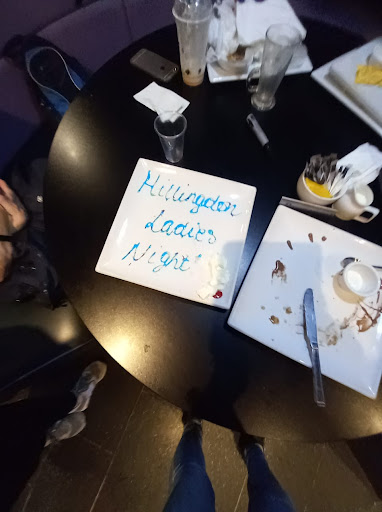 Hillingdon
Ladies
Night!